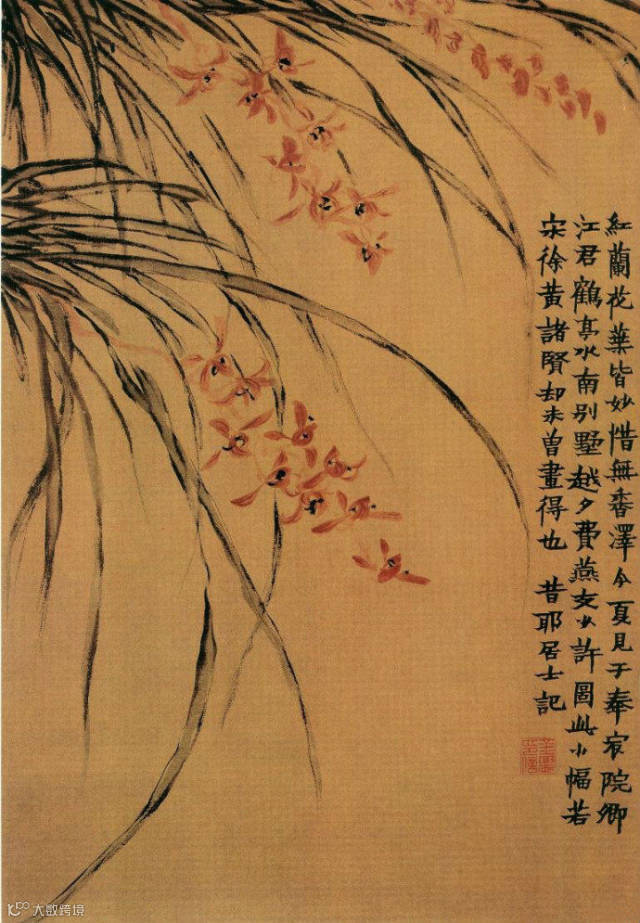 紅蘭花葉皆妙惜無香澤今夏見于奉宸院卿
江君鶴亭水南別墅越夕費燕支少許圖此小幅若
宋徐黃諸賢却未曾畫得也 昔耶居士記
大数跨境